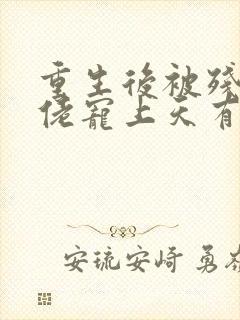 重生後被殘
佬寵上天有
安琉安崎 勇